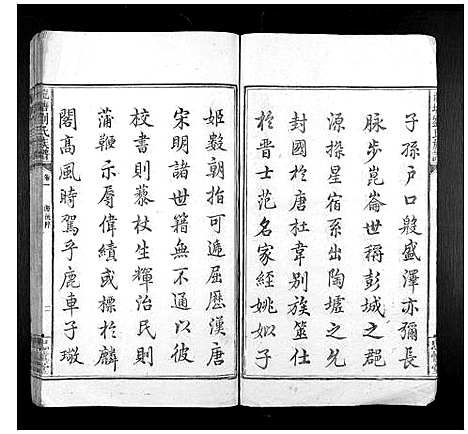 子孫户口殷盛澤亦彌長
脉步崑崙世稱彭城之郡
源探星宿系出陶墟之允
封國於唐杜韋别族筮仕
於晋士范名家經姚如子
姬數朝指可遞屈歷漢唐
宋明諸世籍無不通以彼
校書則藜杖生輝治民則
蒲鞭示辱偉績或標於麟
閣高風時駕乎鹿車子墩
劉氏族譜
卷一